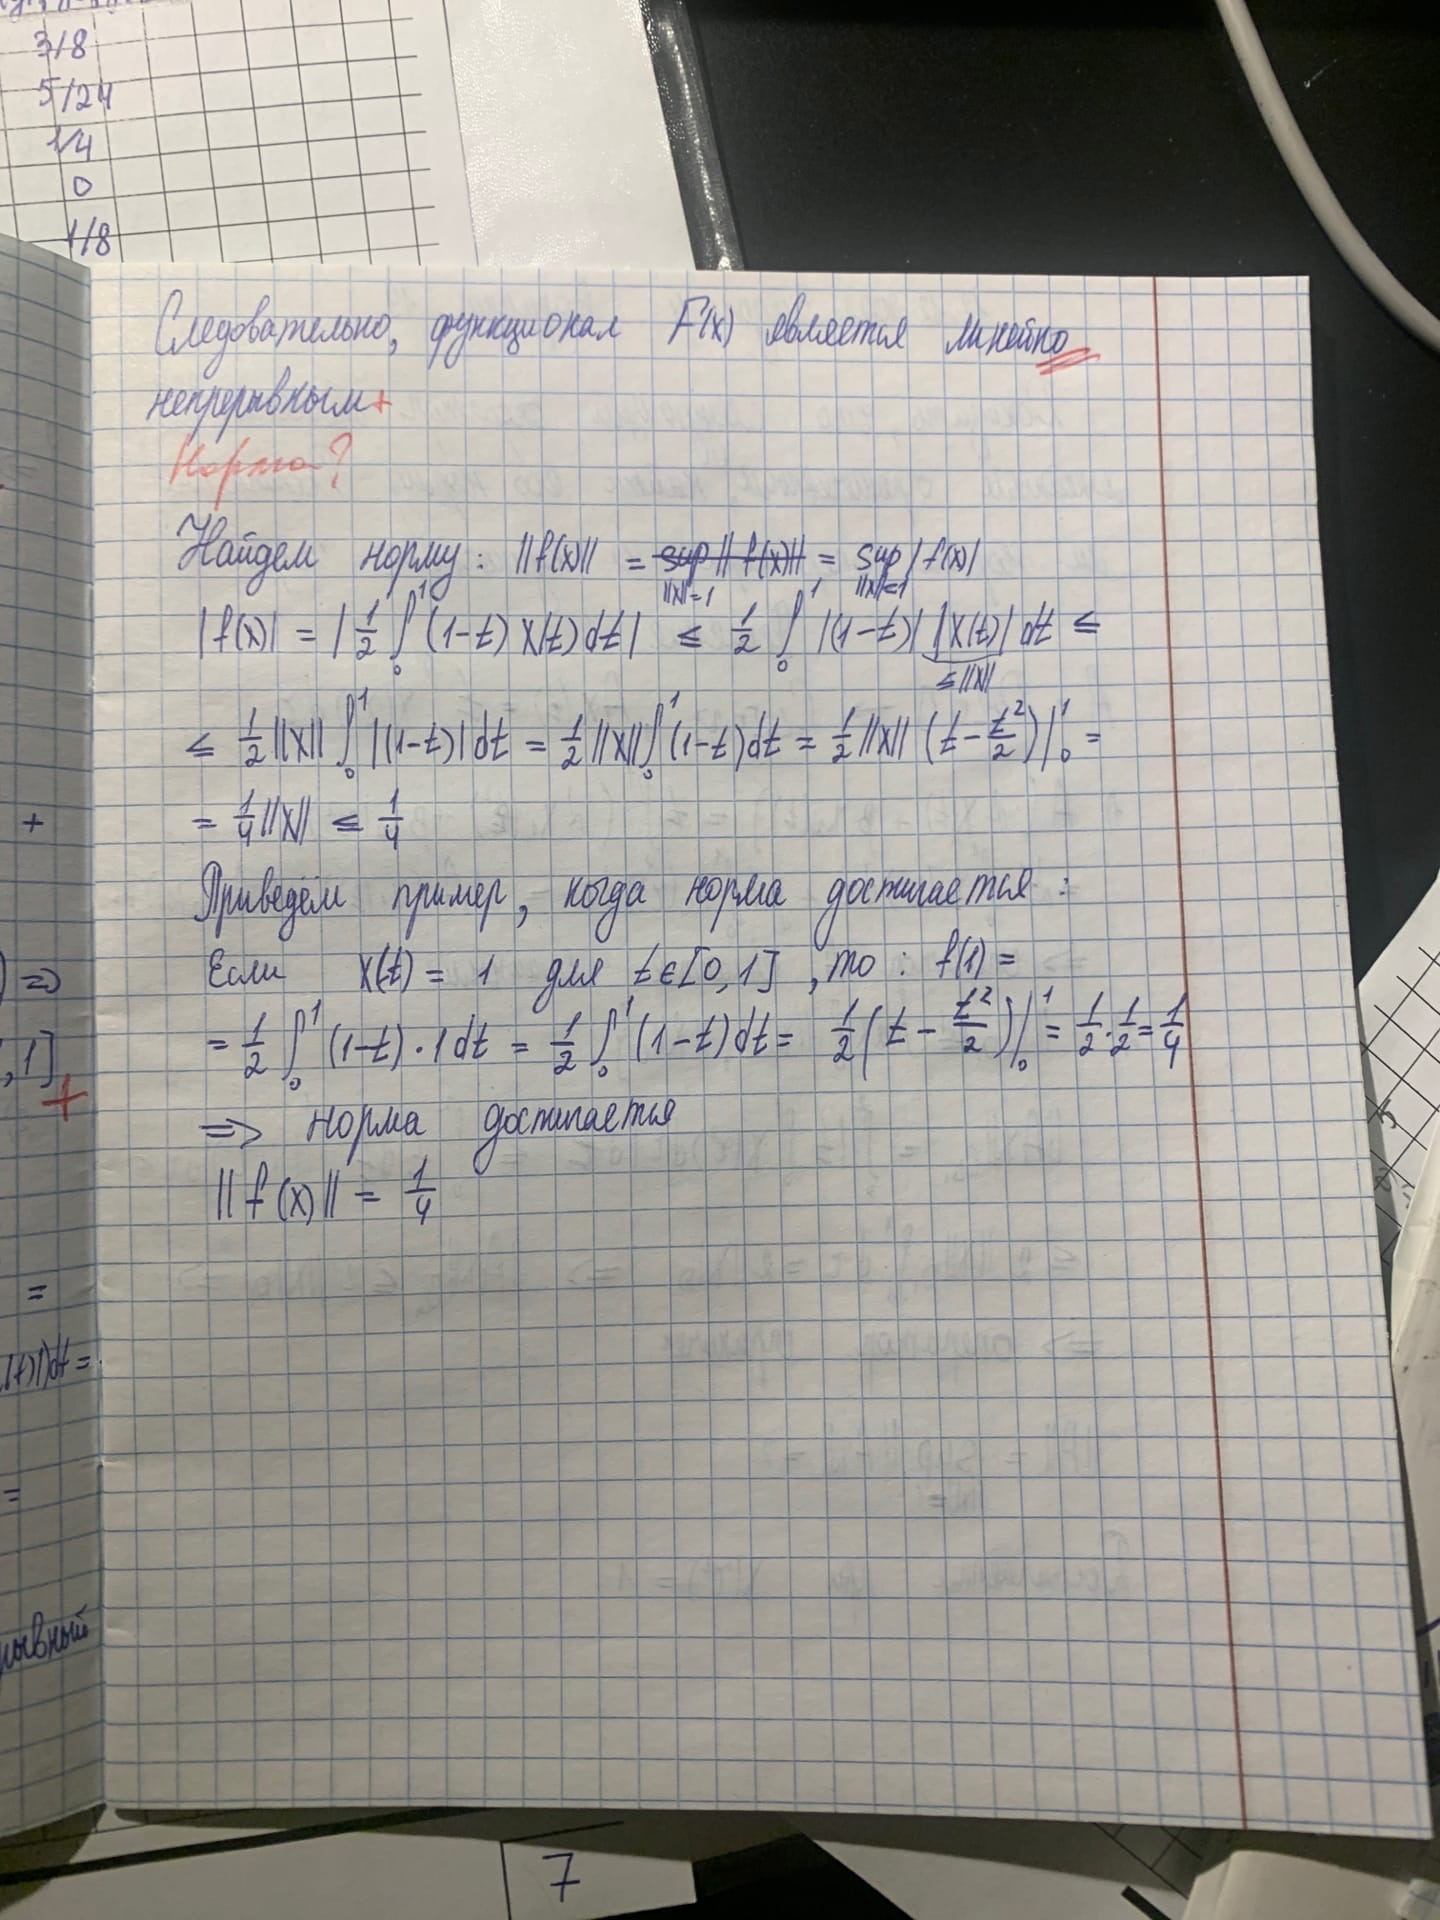 3/8
5/24
1/4
0
1/8
Следовательно, функционал F(x) является линейно
непрерывным +
Норма?
Найдем норму: ||f(x)|| = sup || f(x)|| = sup |f(x)|
||x||=1 ||x||≤1
|f(x)| = | 1/2 ∫₀¹ (1-t) x(t) dt | ≤ 1/2 ∫₀¹ |(1-t)| |x(t)| dt ≤
≤||x||
≤ 1/2 ||x|| ∫₀¹ |(1-t)| dt = 1/2 ||x|| ∫₀¹ (1-t) dt = 1/2 ||x|| (t - t²/2) |₀¹ =
= 1/4 ||x|| ≤ 1/4
Приведём пример, когда норма достигается :
Если x(t) = 1 для t∈[0,1] , то : f(1) =
= 1/2 ∫₀¹ (1-t) · 1 dt = 1/2 ∫₀¹ (1-t) dt = 1/2 (t - t²/2) |₀¹ = 1/2 · 1/2 = 1/4
=> норма достигается
|| f(x) || = 1/4
+
) =>
, 1]
+
=
(t)|)dt =
=
рывный
5
7